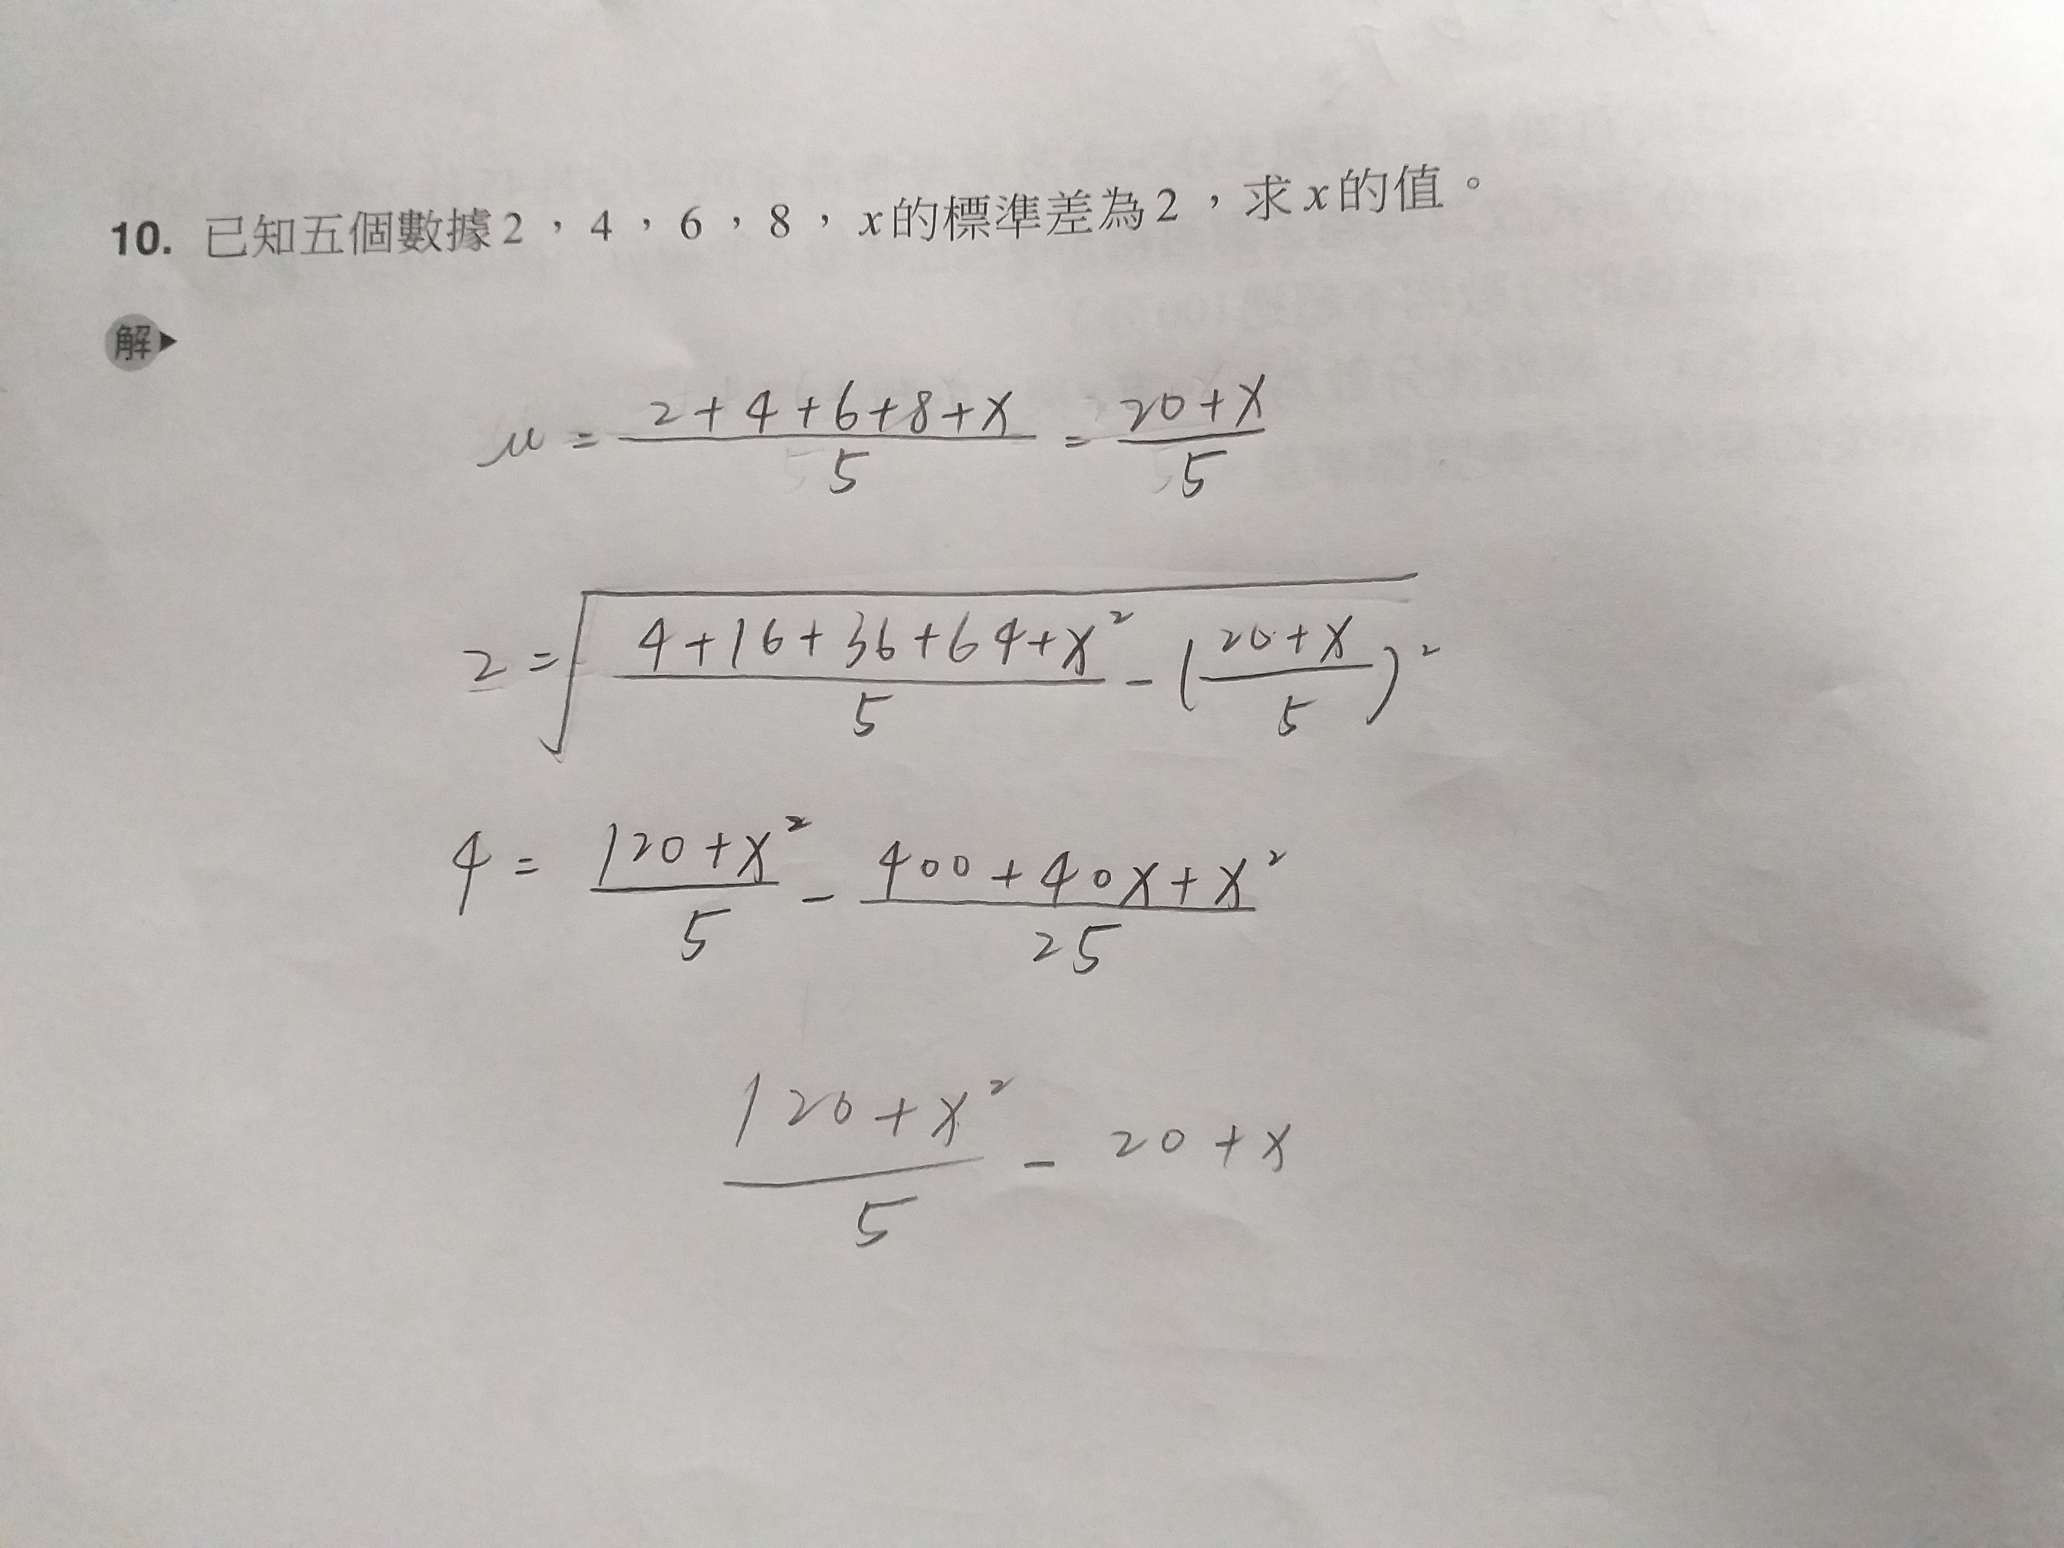 10. 已知五個數據2，4，6，8，x的標準差為2，求x的值。
解▶
μ = (2+4+6+8+x)/5 = (20+x)/5
2 = √((4+16+36+64+x²)/5 - ((20+x)/5)²)
4 = (120+x²)/5 - (400+40x+x²)/25
(120+x²)/5 - 20+x